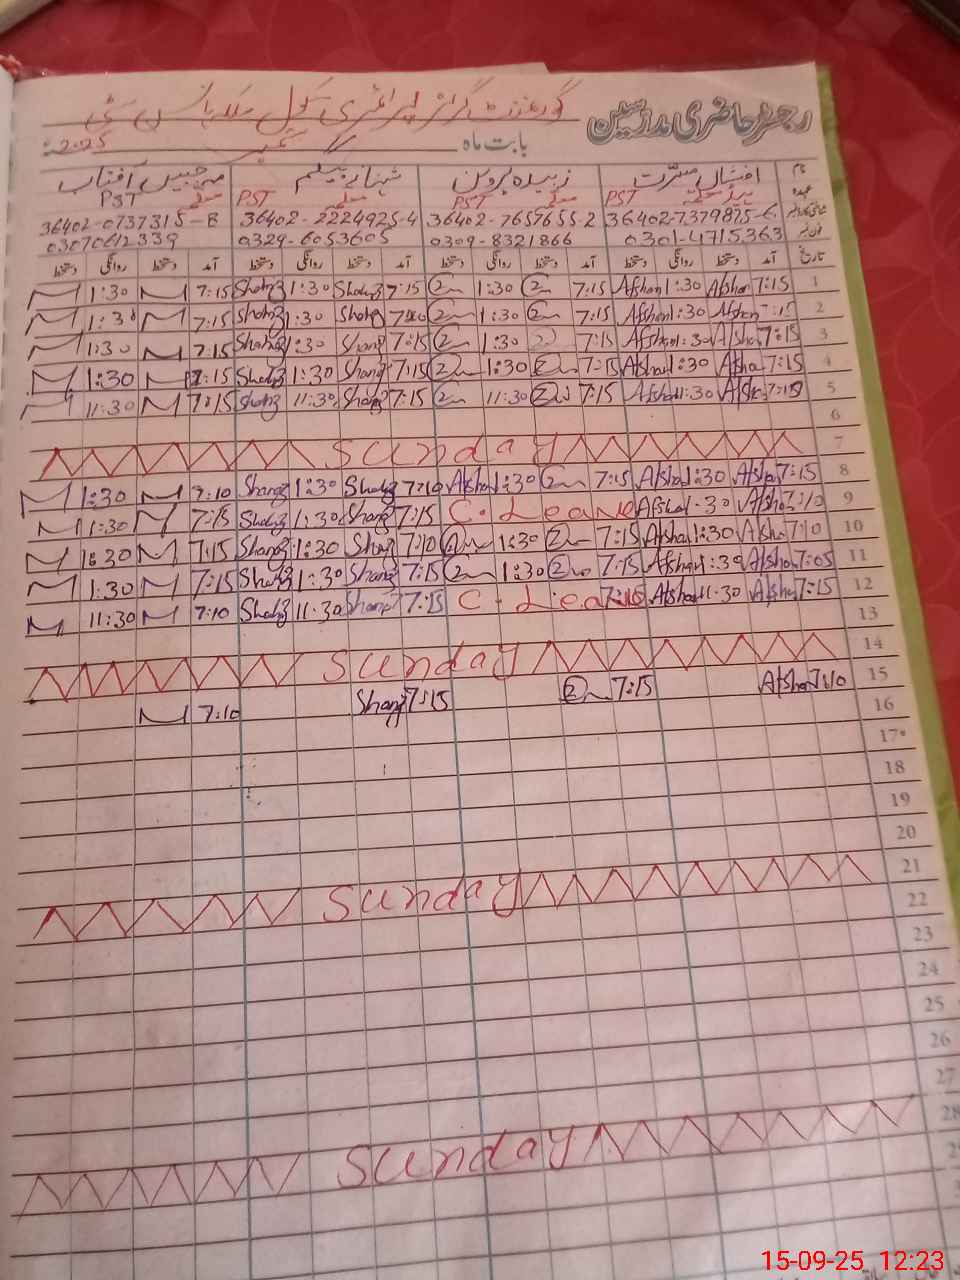 رجسٹر حاضری مدرسین
گورنمنٹ گرلز پرائمری سکول
بابت ماہ ستمبر 2025ء
نام افشاں مسرت زبیدہ پروین شہناز بیگم مہ جبیں آفتاب
عہدہ PST ہیڈ معلمہ PST معلمہ PST معلمہ PST معلمہ
36402-7379875-6 36402-7657655-2 36402-2224925-4 36402-0737315-8
0301-4715363 0309-8321866 0329-6053605 03070612339
تاریخ آمد دستخط روانگی دستخط آمد دستخط روانگی دستخط آمد دستخط روانگی دستخط آمد دستخط روانگی دستخط
1 7:15 Afshan 1:30 Afshan 7:15 1:30 7:15 Shahnz 1:30 Shahnz 7:15 1:30
2 7:15 Afshan 1:30 Afshan 7:15 1:30 Shahnz 1:30 Shahnz 7:15 1:30
3 7:15 Afshan 1:30 Afshan 7:15 1:30 7:15 Shahnz 1:30 Shahnz 7:15 1:30
4 7:15 Afshan 1:30 Afshan 7:15 1:30 7:15 Shahnz 1:30 Shahnz 7:15 1:30
5 7:15 Afshan 11:30 Afshan 7:15 11:30 7:15 Shahnz 11:30 Shahnz 7:15 11:30
6
7 Sunday
8 7:15 Afshan 1:30 Afshan 7:15 1:30 Afshan 7:10 Shahnz 1:30 Shahnz 7:10 1:30
9 7:10 Afshan 1:30 Afshan C. Leave 7:15 Shahnz 1:30 Shahnz 7:15 1:30
10 7:10 Afshan 1:30 Afshan 7:15 1:30 7:10 Shahnz 1:30 Shahnz 7:15 1:30
11 7:05 Afshan 1:30 Afshan 7:15 1:30 7:15 Shahnz 1:30 Shahnz 7:15 1:30
12 7:15 Afshan 11:30 Afshan C. Leave 7:15 Shahnz 11:30 Shahnz 7:10 11:30
13
14 Sunday
15 7:10 Afshan 7:15 7:15 Shahnz 7:10
16
17
18
19
20
21 Sunday
22
23
24
25
26
27
28 Sunday
15-09-25 12:23